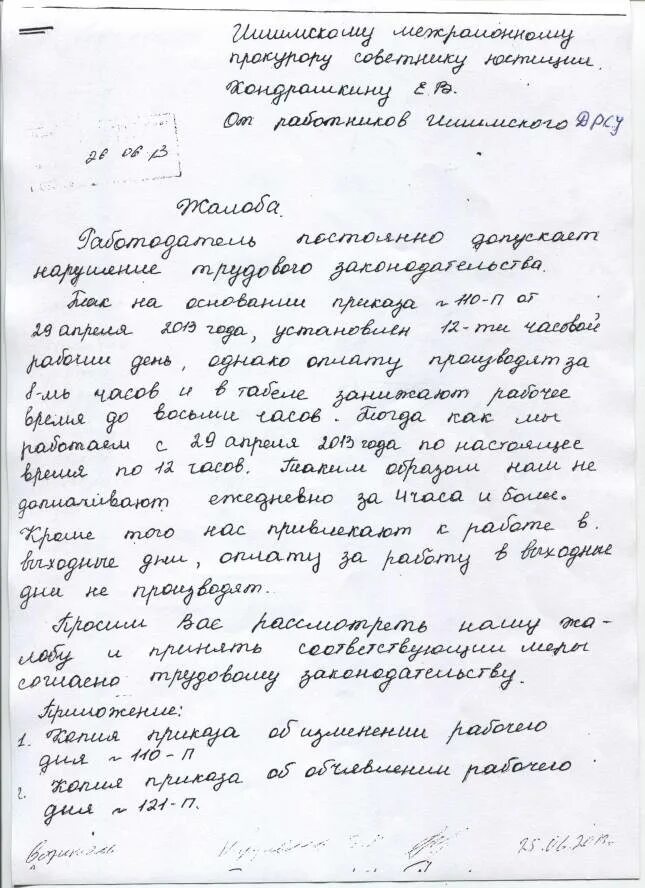 Ишимскому межрайонному
прокурору советнику юстиции.
Кондрашкину Е.В.
От работников Ишимского ДРСУ
26 06 13
Жалоба.
Работодатель постоянно допускает
нарушение трудового законодательства.
Так на основании приказа № 110-П от
29 апреля 2013 года, установлен 12-ти часовой
рабочий день, однако оплату производят за
8-мь часов и в табеле занижают рабочее
время до восьми часов. Тогда как мы
работаем с 29 апреля 2013 года по настоящее
время по 12 часов. Таким образом нам не
доплачивают ежедневно за 4 часа и более.
Кроме того нас привлекают к работе в
выходные дни, оплату за работу в выходные
дни не производят.
Просим Вас рассмотреть нашу жа-
лобу и принять соответствующии меры
согласно трудовому законодательству.
Приложение:
1. Копия приказа об изменении рабочего
дня № 110-П
2. Копия приказа об объявлении рабочего
дня № 121-П.
25.06.2013г